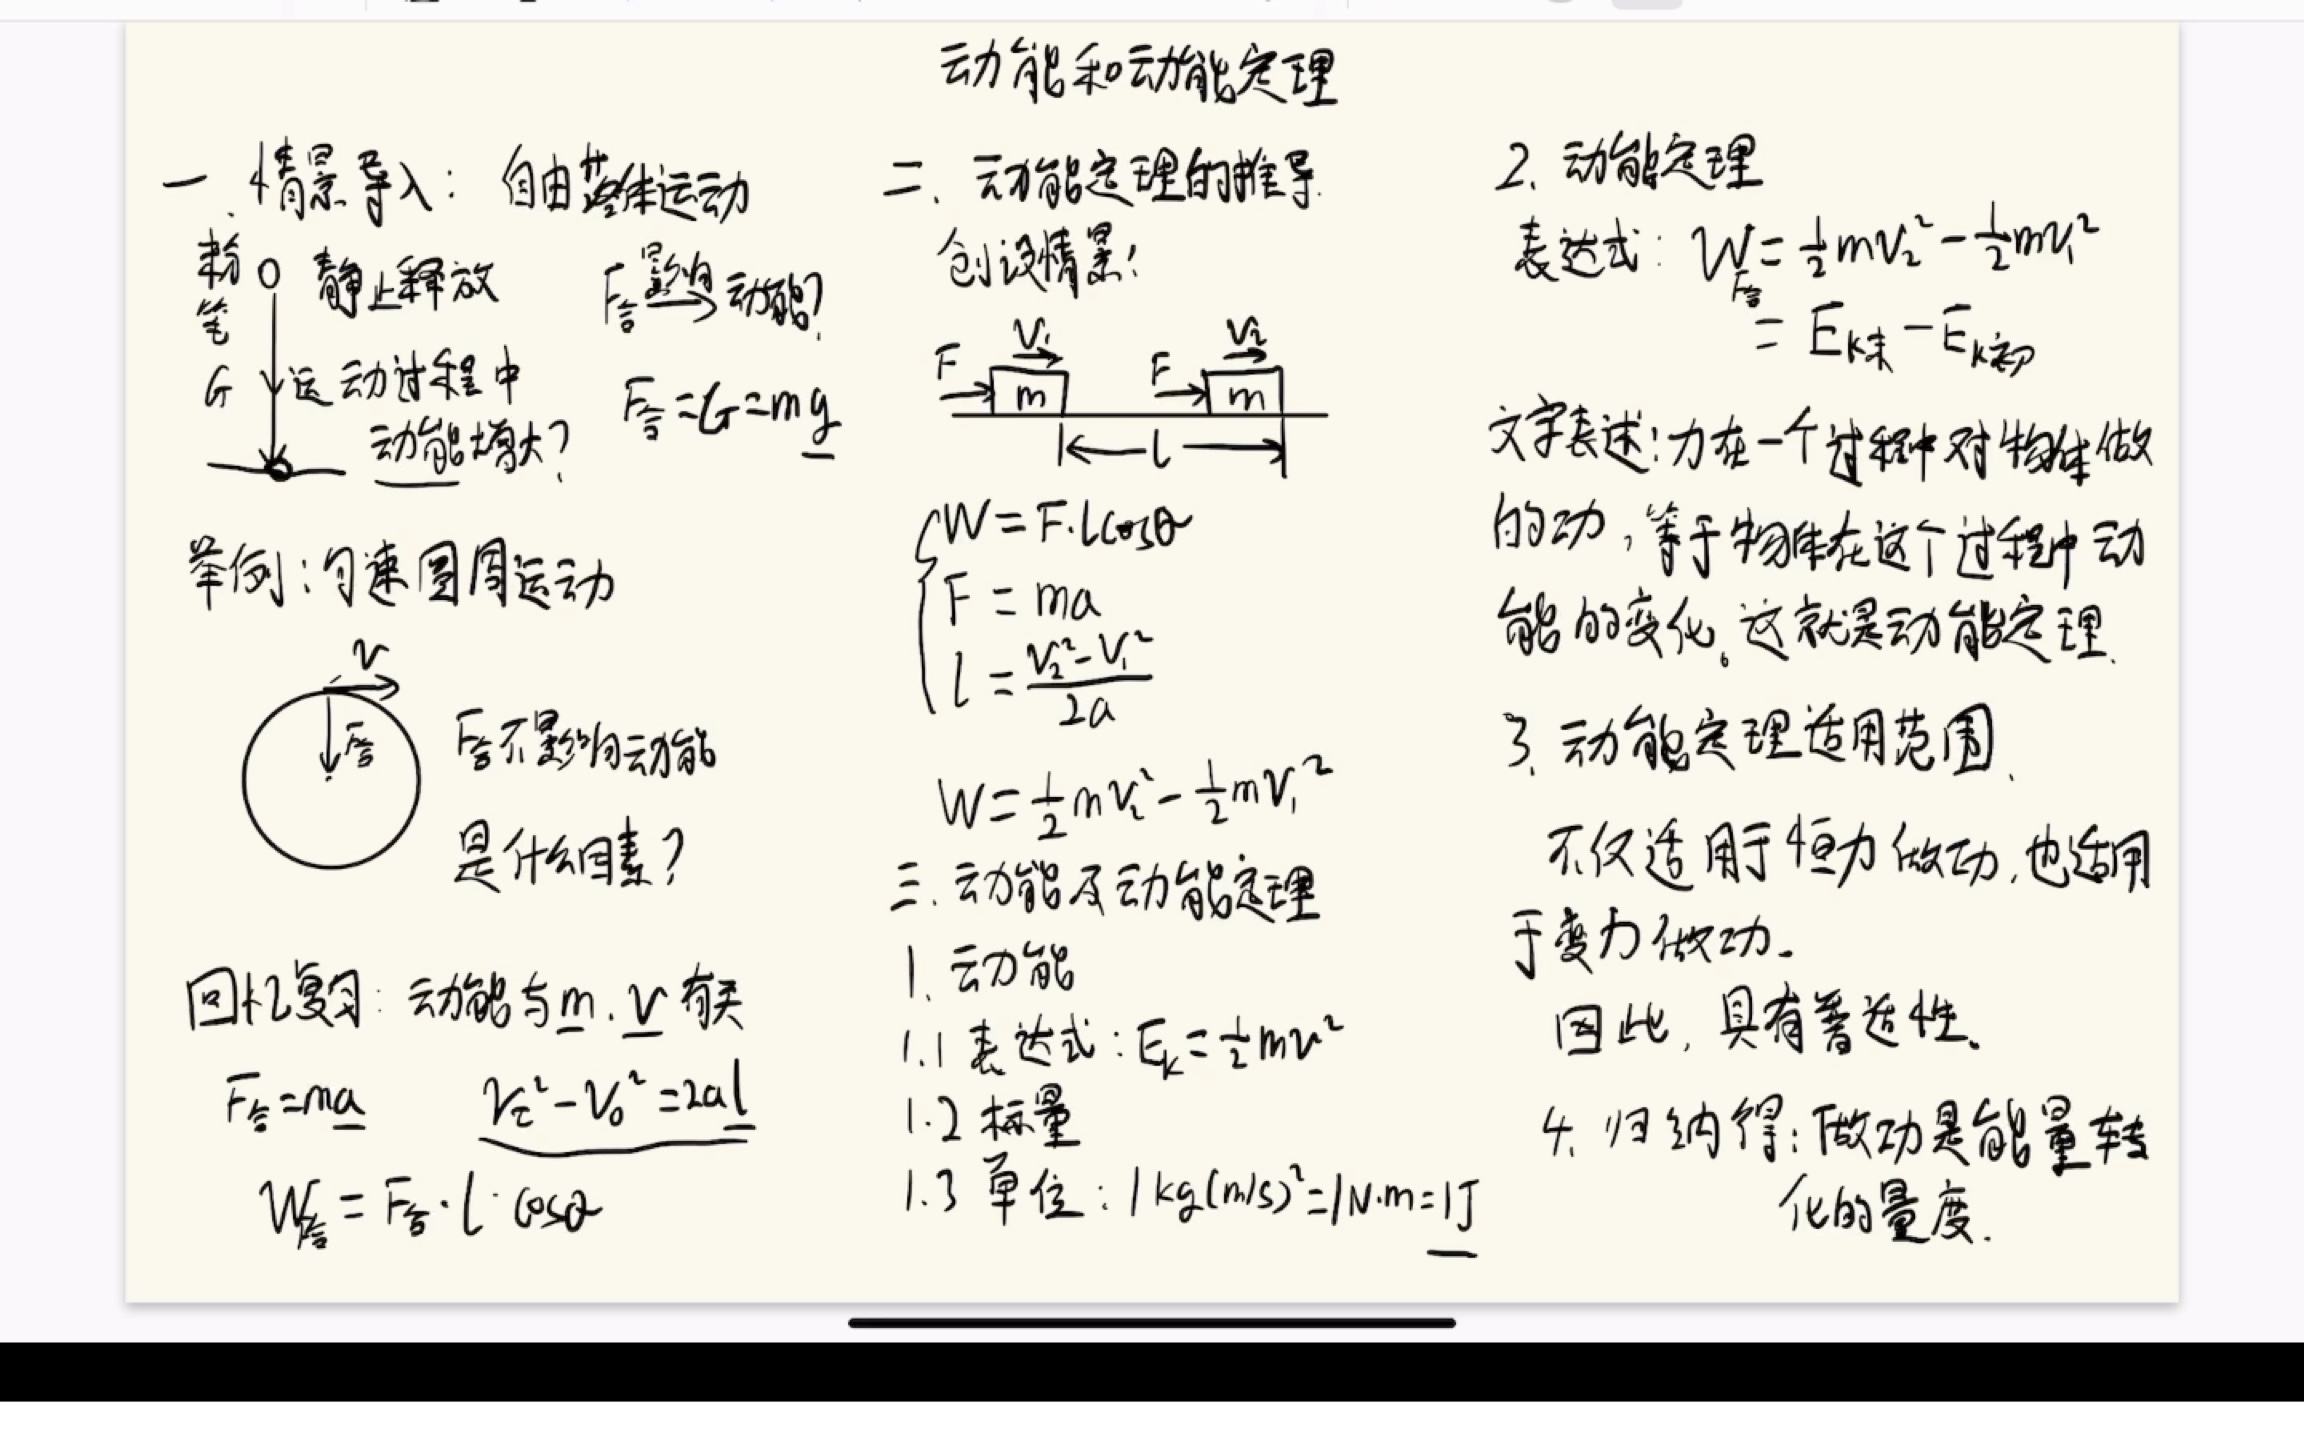 动能和动能定理
一、情景导入：自由落体运动
粉笔
静止释放
F合 影响→ 动能？
G
运动过程中
动能增大？
F合=G=mg
举例：匀速圆周运动
v
F合
F合不影响动能
是什么因素？
回忆复习：动能与m、v有关
F合=ma
v_t²-v₀²=2al
W_F合=F合·l·cosθ
二、动能定理的推导
创设情景：
F v₁ m F v₂ m
l
W=F·lcosθ
F=ma
l=(v₂²-v₁²)/2a
W=½mv₂²-½mv₁²
三、动能及动能定理
1、动能
1.1 表达式：E_k=½mv²
1.2 标量
1.3 单位：1kg(m/s)²=1N·m=1J
2、动能定理
表达式：W_F合=½mv₂²-½mv₁²
=E_k末-E_k初
文字表述：力在一个过程中对物体做
的功，等于物体在这个过程中动
能的变化。这就是动能定理.
3、动能定理适用范围、
不仅适用于恒力做功，也适用
于变力做功.
因此，具有普适性、
4、归纳得：做功是能量转
化的量度.